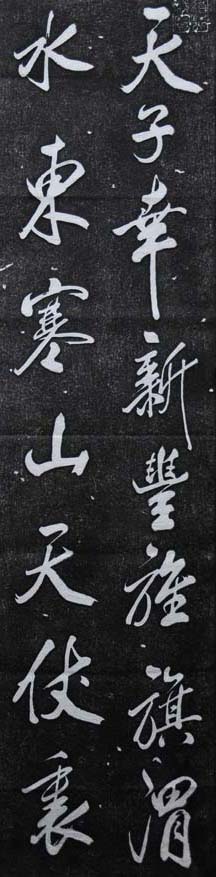 天子幸新豐旌旗渭
水東寒山天仗裏